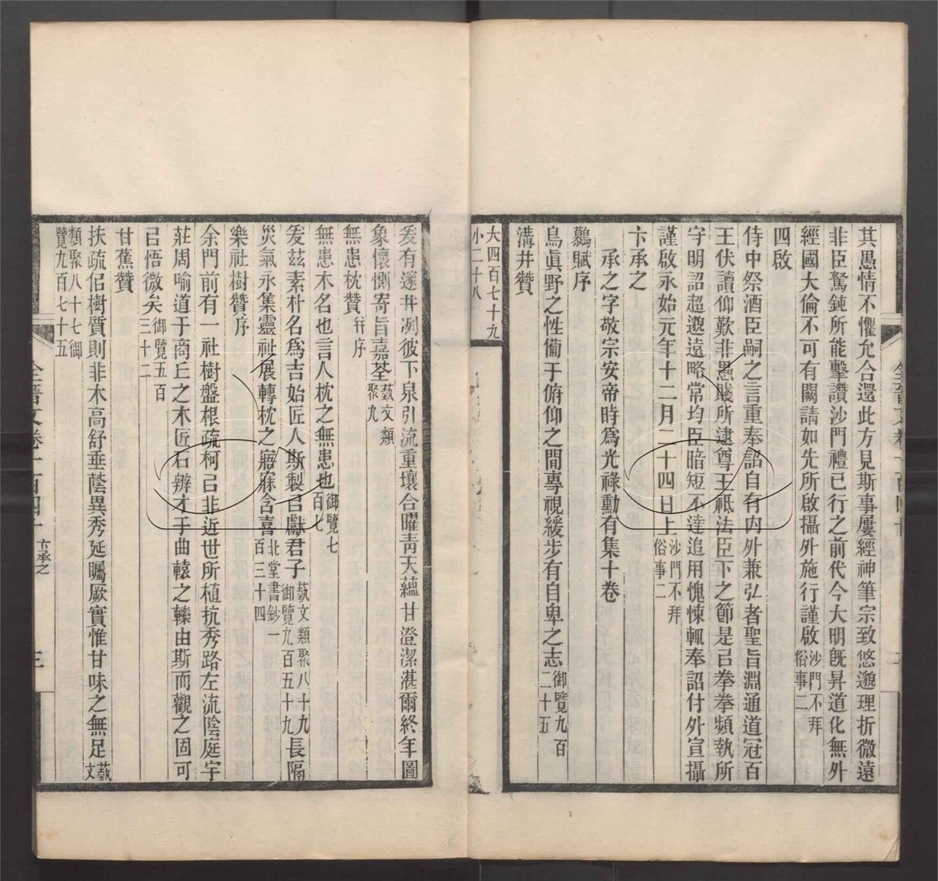 其愚情不懼允合還此方見斯事屢經神筆宗致悠邈理折微遠
非臣駑鈍所能擊讚沙門禮已行之前代今大明既昇道化無外
經國大倫不可有闕請如先所啟攝外施行謹啟沙門不拜俗事二
四啟
侍中祭酒臣嗣之言重奉詔自有內外兼弘者聖旨淵通道冠百
王伏讀仰歎非愚賤所逮尊主祗法臣下之節是㠯拳拳頻執所
字明詔超邈遠略常均臣暗短不達追用愧悚輒奉詔付外宣攝
謹啟永始元年十二月二十四日上沙門不拜俗事二
卞承之
承之字敬宗安帝時為光祿勳有集十卷
鸚賦序
鳥眞野之性備于俯仰之間專視緩步有自卑之志御覽九百二十五
溝井贊
大四百七十九
小二十八
爰有邃井冽彼下泉引流重壤合曜青天蘊甘澄潔湛爾終年圖
象懷惻寄旨嘉荃藝文類聚九
無患枕贊并序
無患木名也言人枕之無患也御覽七百七
爰茲素朴名為吉始匠人斯製㠯獻君子藝文類聚八十九御覽九百五十九長隔
災氣永集靈祉展轉枕之寤寐含喜北堂書鈔一百三十四
樂社樹贊序
余門前有一社樹盤根疏柯㠯非近世所植抗秀路左流陰庭宇
莊周喻道于商丘之木匠石辨才于曲轅之櫟由斯而觀之固可
㠯悟微矣御覽五百三十二
甘蕉贊
扶疏似樹質則非木高舒垂蔭異秀延矚厥實惟甘味之無足藝文
類聚八十七御覽九百七十五
全晉文卷一百四十 卞承之 三